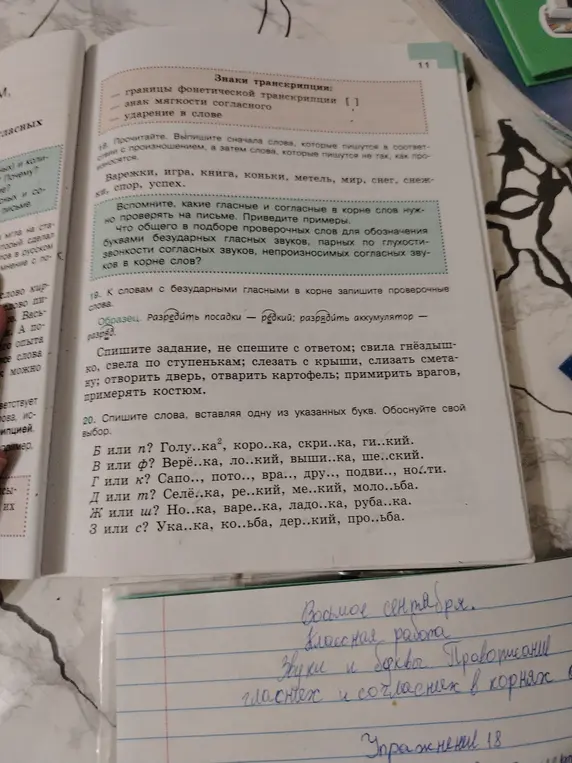 11
Знаки транскрипции:
— границы фонетической транскрипции [ ]
— знак мягкости согласного
— ударение в слове
18. Прочитайте. Выпишите сначала слова, которые пишутся в соответ-
ствии с произношением, а затем слова, которые пишутся не так, как про-
износятся.
Варежки, игра, книга, коньки, метель, мир, снег, снеж-
спор, успех.
Вспомните, какие гласные и согласные в корне слов нуж-
но проверять на письме. Приведите примеры.
Что общего в подборе проверочных слов для обозначения
буквами безударных гласных звуков, парных по глухости-
звонкости согласных звуков, непроизносимых согласных зву-
ков в корне слов?
19. К словам с безударными гласными в корне запишите проверочные
слова.
Образец. Разредить посадки — редкий; разрядить аккумулятор —
разряд.
Спишите задание, не спешите с ответом; свила гнёздыш-
ко, свела по ступенькам; слезать с крыши, слизать смета-
ну; отворить дверь, отварить картофель; примирить врагов,
примерять костюм.
20. Спишите слова, вставляя одну из указанных букв. Обоснуйте свой
выбор.
Б или п? Голу..ка², коро..ка, скри..ка, ги..кий.
В или ф? Верё..ка, ло..кий, выши..ка, ше..ский.
Г или к? Сапо.., пото.., вра.., дру.., подви.., но..ти.
Д или т? Селё..ка, ре..кий, ме..кий, моло..ьба.
Ж или ш? Но..ка, варе..ка, ладо..ка, руба..ка.
З или с? Ука..ка, ко..ьба, дер..кий, про..ьба.
Восьмое сентября.
Классная работа
Звуки и буквы Правописание
гласных и согласных в корнях
Упражнение 18